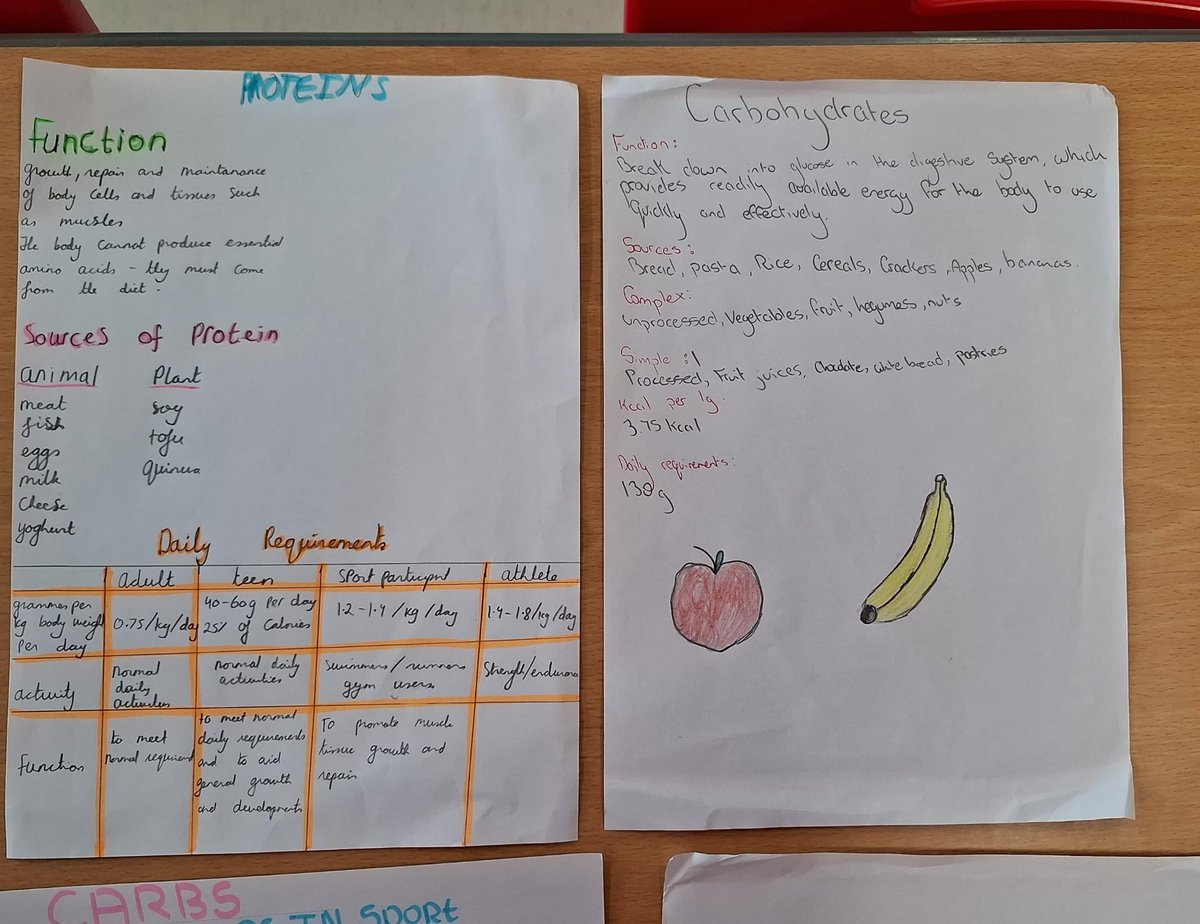 PROTEINS
Function
growth, repair and maintanance
of body cells and tissues such
as muscles
The body cannot produce essential
amino acids - they must come
from the diet.
Sources of Protein
animal Plant
meat soy
fish tofu
eggs quinua
milk
Cheese
yoghurt
Daily Requirements
adult teen sport participnt athlete
grammes per kg body weight per day 0.75/kg/day 40-60g per day 25% of calories 1.2-1.4/kg/day 1.4-1.8/kg/day
activity normal daily activities normal daily activities swimmers/runners gym users Strength/endurance
function to meet normal requirement to meet normal daily requirements and to aid general growth and developments To promote muscle tissue growth and repair
Carbohydrates
Function:
Break down into glucose in the digestive system, which
provides readily available energy for the body to use
quickly and effectively.
Sources:
Bread, pasta, Rice, Cereals, Crackers, Apples, bananas.
Complex:
unprocessed, Vegetables, fruit, legumess, nuts
Simple:
Processed, Fruit juices, Chocolate, white bread, pastries
Kcal per 1g
3.75 Kcal
Daily requirements:
130g
CARBS
IN SPORT